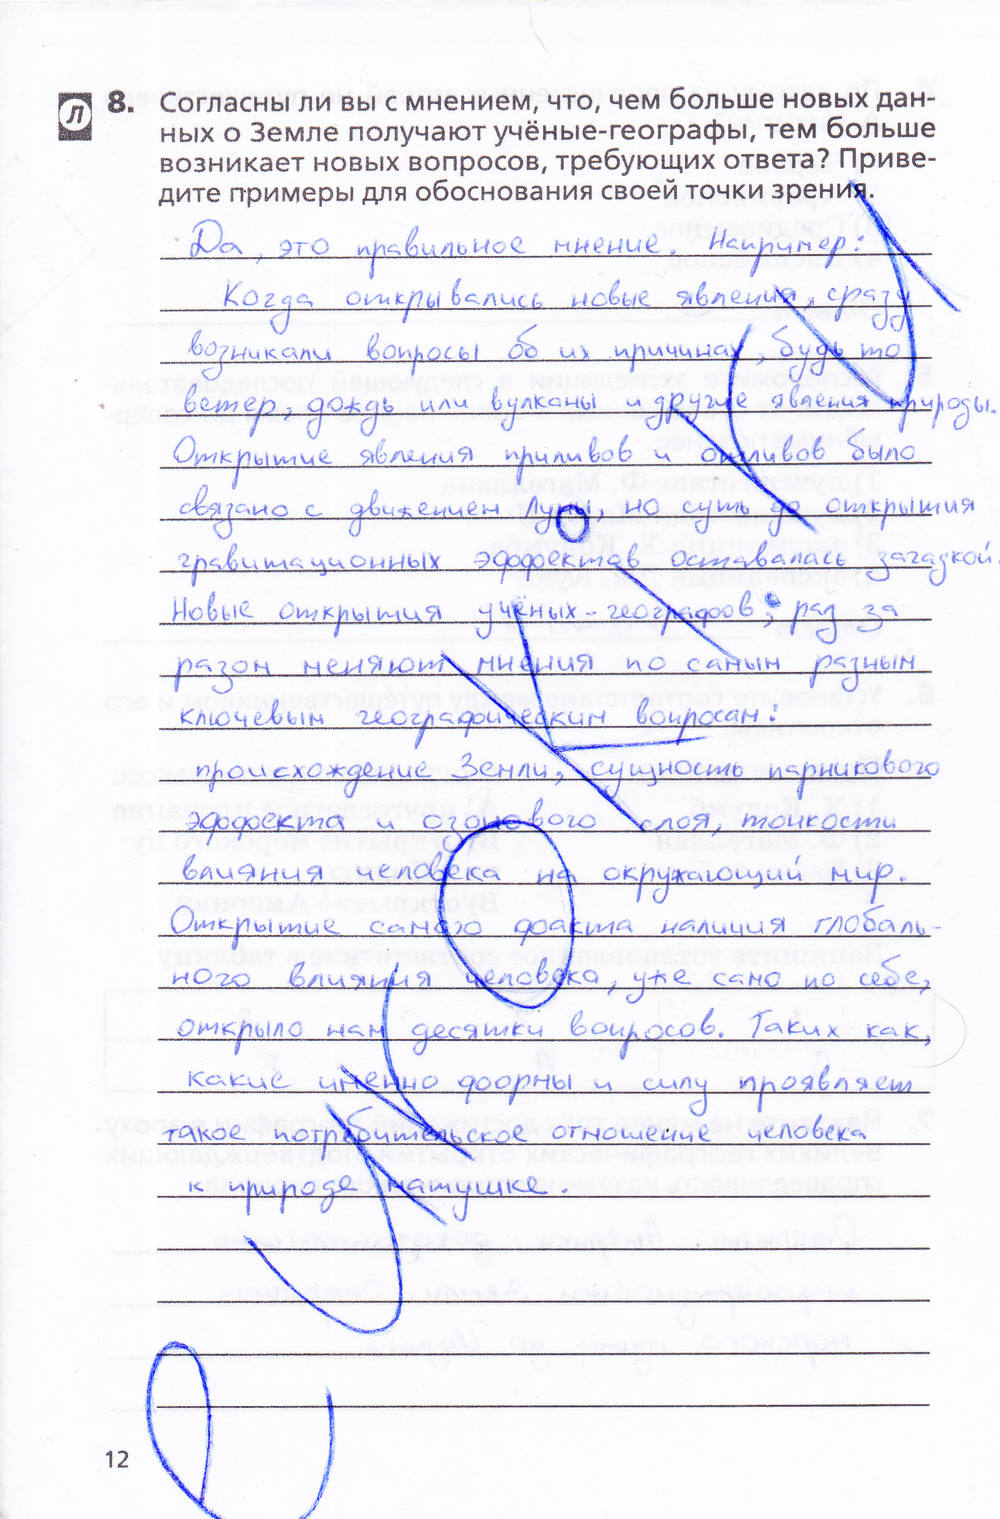 Л 8. Согласны ли вы с мнением, что, чем больше новых дан-
ных о Земле получают учёные-географы, тем больше
возникает новых вопросов, требующих ответа? Приве-
дите примеры для обоснования своей точки зрения.
Да, это правильное мнение. Например:
Когда открывались новые явления, сразу
возникали вопросы об их причинах, будь то
ветер, дождь или вулканы и другие явления природы.
Открытие явления приливов и отливов было
связано с движением Луны, но суть до открытия
гравитационных эффектов оставалась загадкой.
Новые открытия учёных-географов, раз за
разом меняют мнения по самым разным
ключевым географическим вопросам:
происхождение Земли, сущность парникового
эффекта и озонового слоя, тонкости
влияния человека на окружающий мир.
Открытие самого факта наличия глобаль-
ного влияния человека, уже само по себе,
открыло нам десятки вопросов. Таких как,
какие именно формы и силу проявляет
такое потребительское отношение человека
к природе матушке.
12